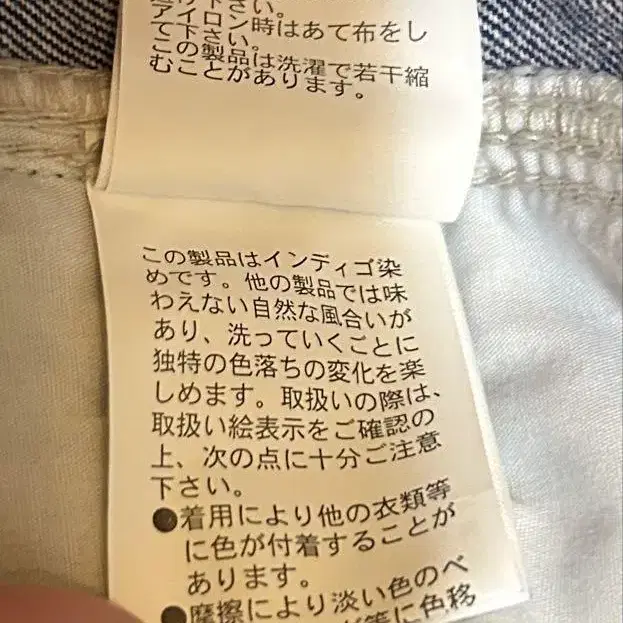 下さい。
アイロン時はあて布をし
て下さい。
この製品は洗濯で若干縮
むことがあります。
この製品はインディゴ染
めです。他の製品では味
わえない自然な風合いが
あり、洗っていくごとに
独特の色落ちの変化を楽
しめます。取扱いの際は、
取扱い絵表示をご確認の
上、次の点に十分ご注意
下さい。
●着用により他の衣類等
に色が付着することが
あります。
●摩擦により淡い色のベ
等に色移